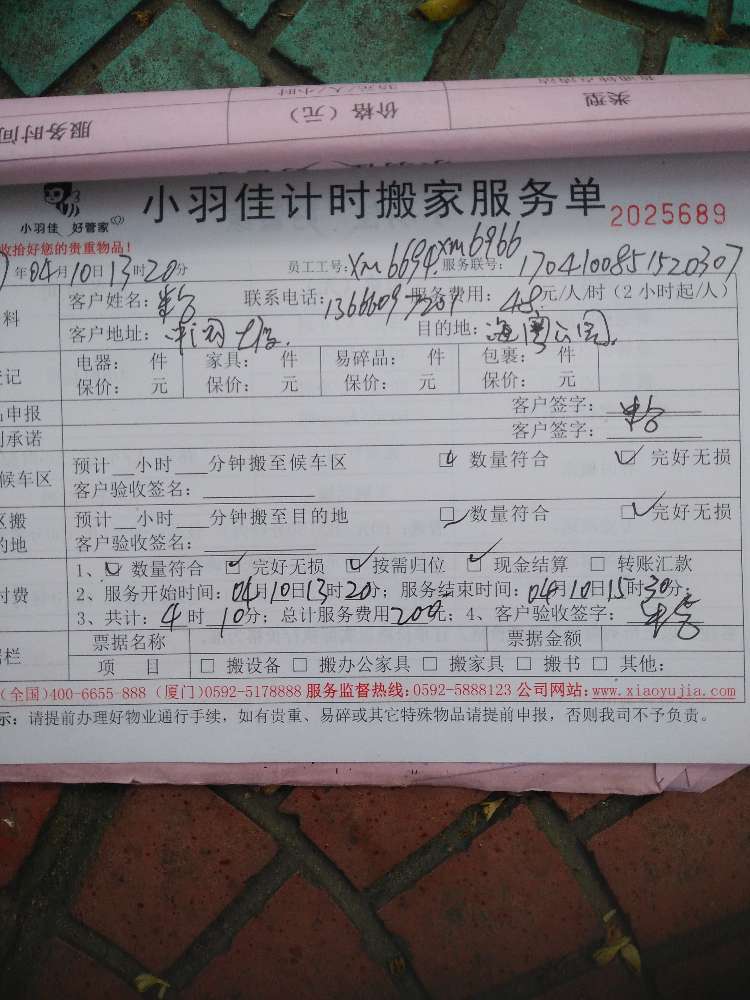 普通钟点清洁
30元/人/小时
类型
价格（元）
服务时间
小羽佳 好管家
小羽佳计时搬家服务单 2025689
收拾好您的贵重物品！
年04月10日13时20分 员工工号：XM6694 XM6966 服务联号：1704100851520307
料 客户姓名： 联系电话： 服务费用：48元/人/时（2小时起/人）
客户地址： 目的地：海湾公园
登记 电器： 件 家具： 件 易碎品： 件 包裹： 件
保价： 元 保价： 元 保价： 元 保价： 元
品申报 客户签字：
承诺 客户签字：
候车区 预计__小时___分钟搬至候车区 □ 数量符合 □ 完好无损
客户验收签名：
区搬 预计__小时___分钟搬至目的地 □ 数量符合 □ 完好无损
的地 客户验收签名：
1、□ 数量符合 □ 完好无损 □ 按需归位 □ 现金结算 □ 转账汇款
付费 2、服务开始时间：04月10日13时20分；服务结束时间：04月10日15时30分；
3、共计：4时10分；总计服务费用200元；4、客户验收签字：
栏 票据名称 票据金额
项 目 □ 搬设备 □ 搬办公家具 □ 搬家具 □ 搬书 □ 其他：
(全国)400-6655-888 (厦门)0592-5178888 服务监督热线：0592-5888123 公司网站：www.xiaoyujia.com
示：请提前办理好物业通行手续，如有贵重、易碎或其它特殊物品请提前申报，否则我司不予负责。